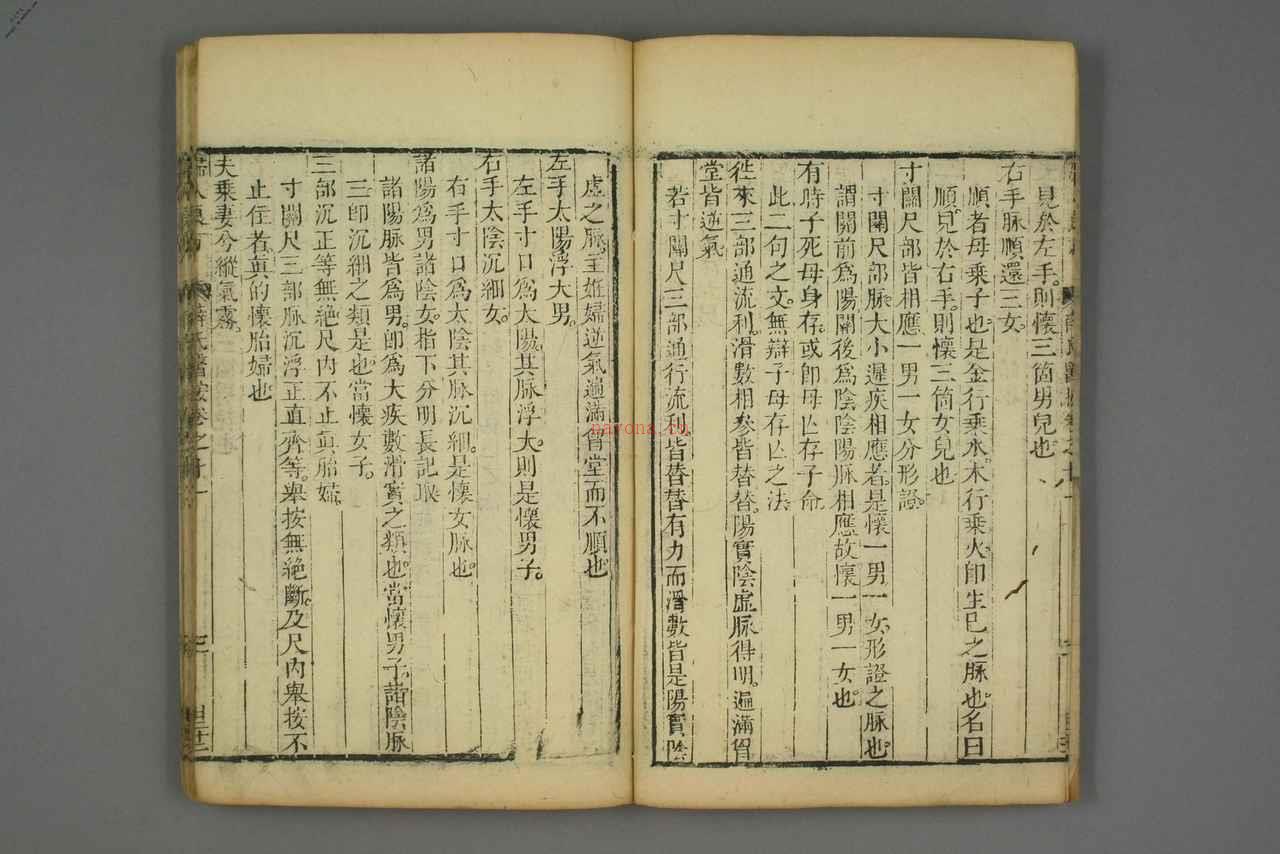 見於左手。則懷三箇男兒也
右手脉順還三女。
順者母乘子也是金行乘水。木行乘火即生已之脉也。名曰
順。見於右手。則懷三箇女兒也
寸關尺部皆相應一男一女分形證。
寸關尺部脉大小遲疾相應者。是懷一男一女形證之脉也
謂關前爲陽關後爲陰陰陽脉相應故懷一男一女也
有時子死母身存。或即母亾存子命
此二句之文。無辯子母存亾之法
徃來三部通流利。滑數相參皆替替。陽實陰虛脉得明。遍滿胷
堂皆逆氣
若寸關尺三部通行流利皆替替有力而滑數皆是陽實陰
虛之脉。主姙婦逆氣遍滿胷堂而不順也
左手太陽浮大男。
左手寸口爲太陽。其脉浮大則是懷男子。
右手太陰沉細女。
右手寸口爲太陰其脉沉細。是懷女脉也。
諸陽爲男諸陰女。指下分明長記取
諸陽脉皆爲男。即爲大疾數滑實之類也。當懷男子。諸陰脉
三部沉正等無絶尺内不止真胎婦。
三即沉細之類是也當懷女子。
寸關尺三部脉沉浮正直齊等。舉按無絶斷。及尺内舉按不
止住者真的懷胎婦也
夫乘妻兮縱氣霧。
薛氏醫按卷之
nayona.cn